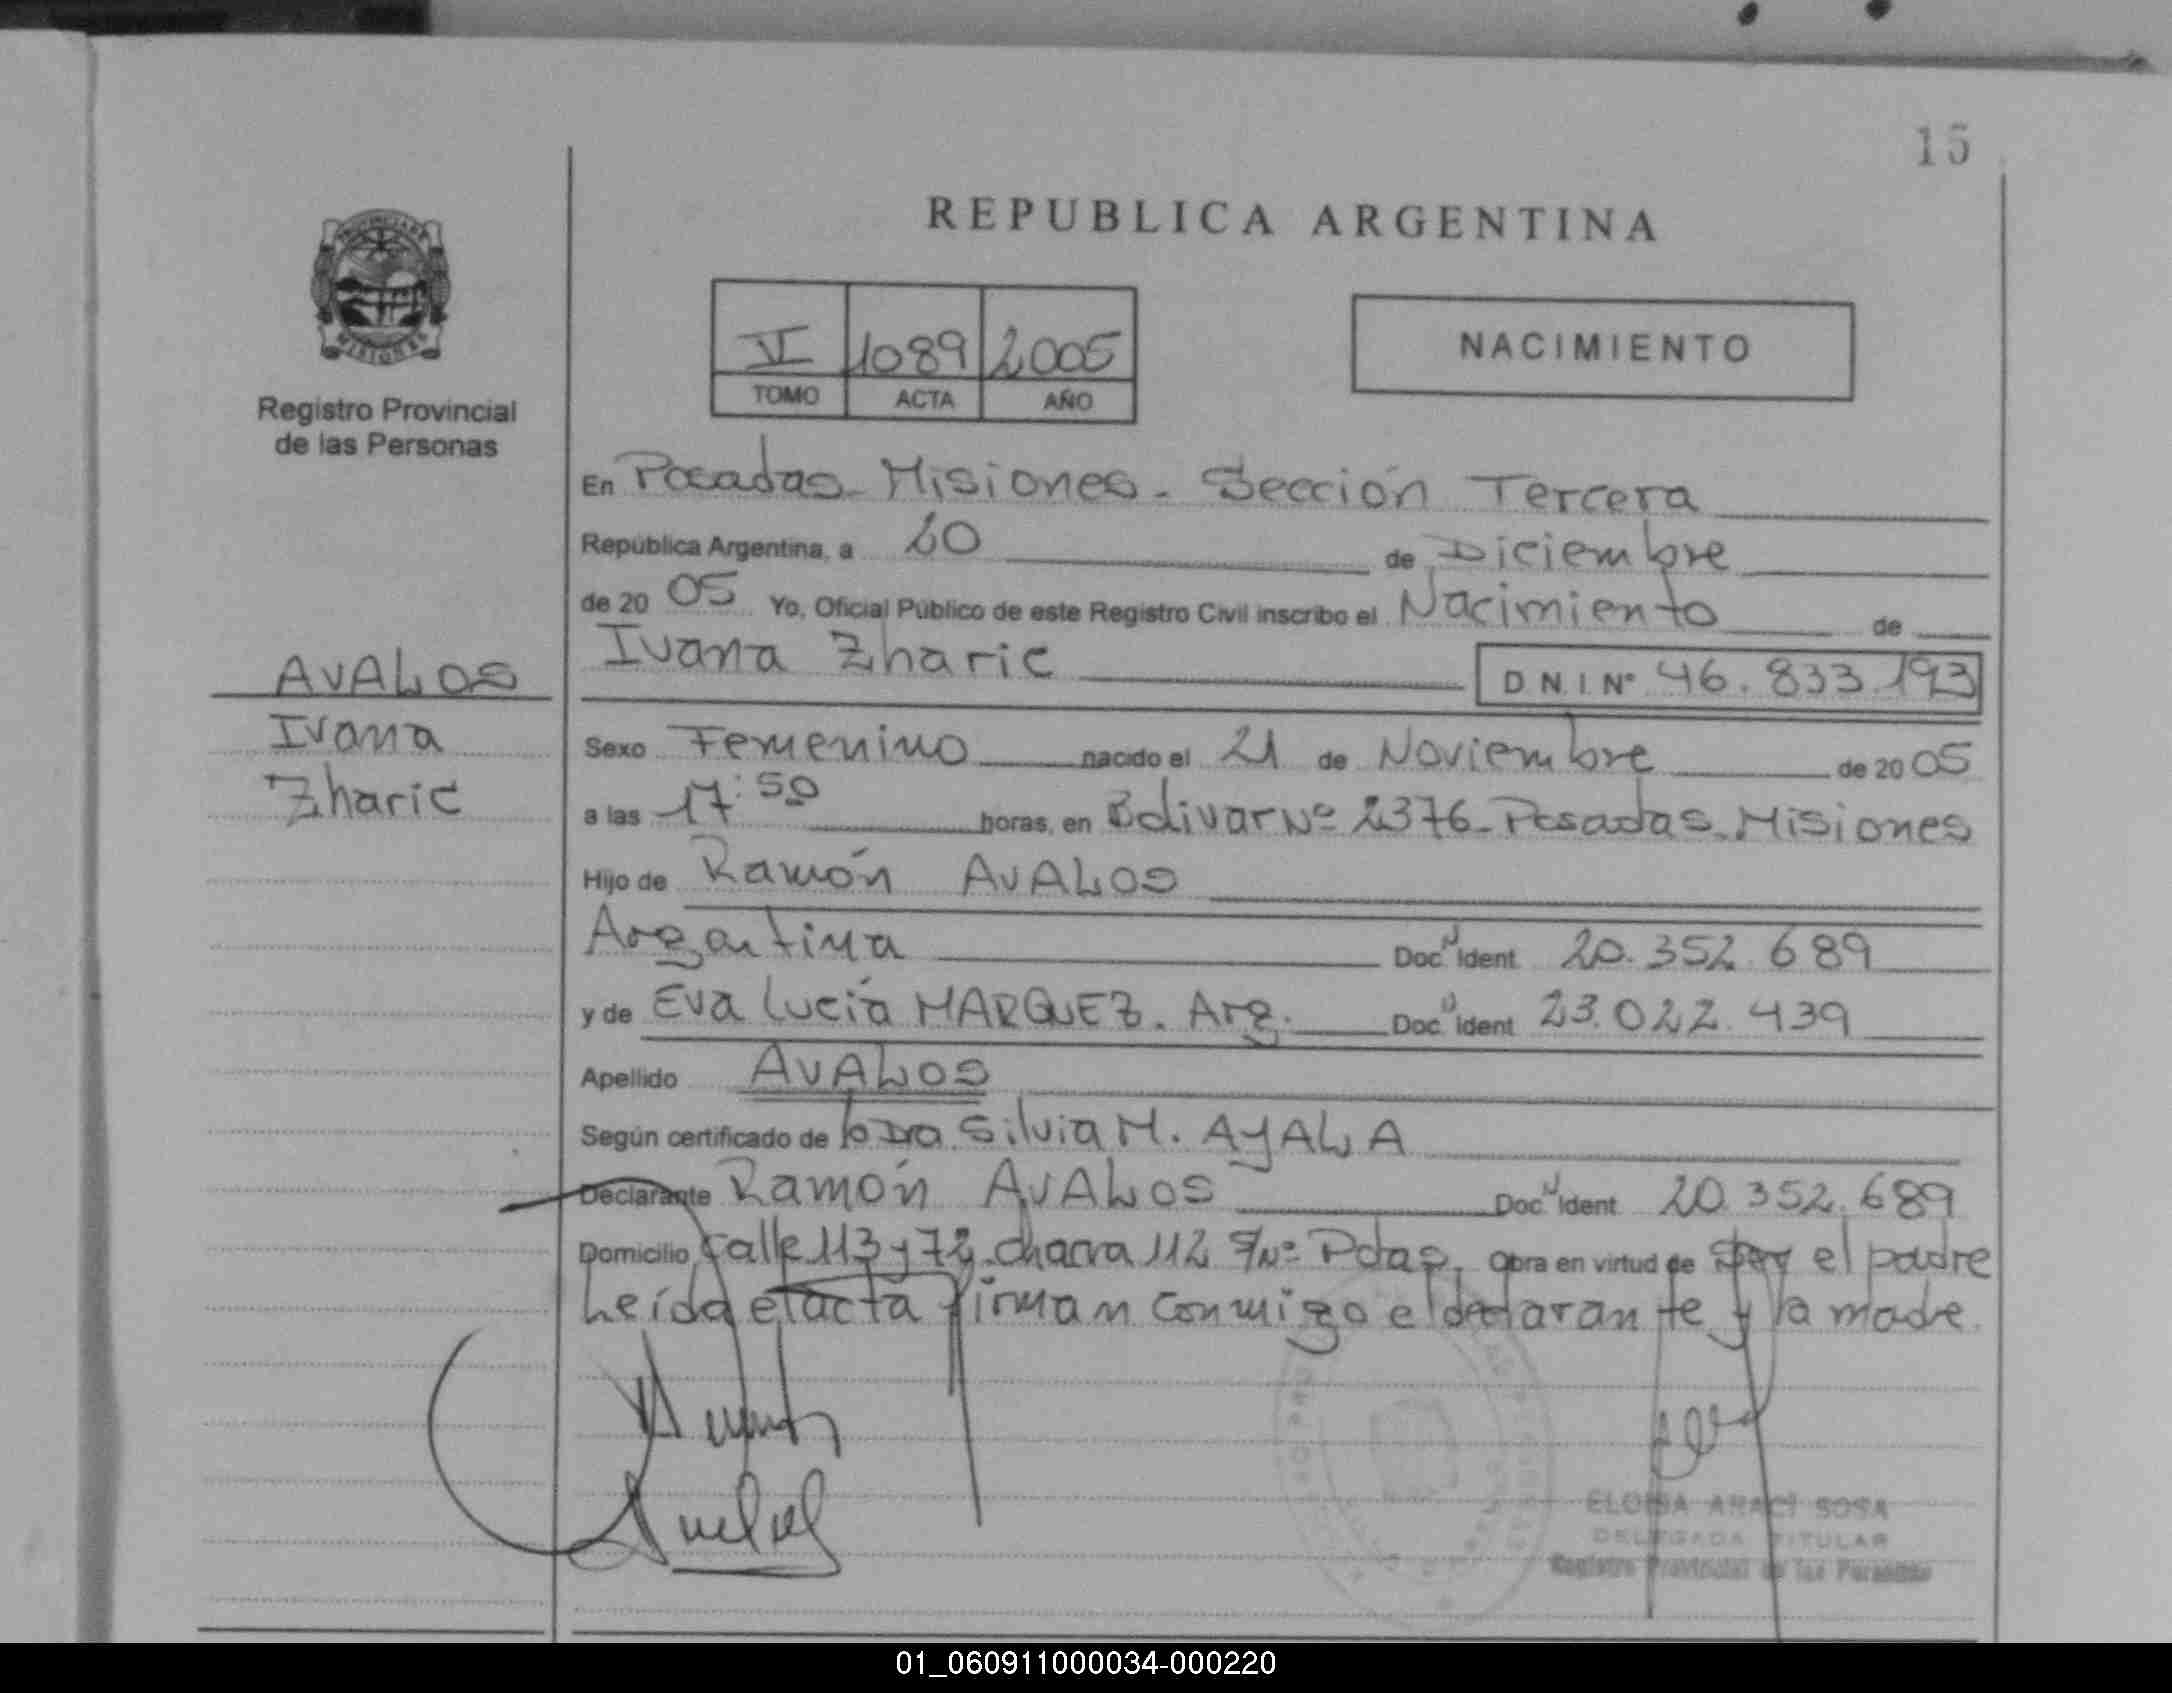 15
REPUBLICA ARGENTINA
PROVINCIA DE
MISIONES
Registro Provincial
de las Personas
VI 1089 2005
TOMO ACTA AÑO
NACIMIENTO
En Posadas - Misiones - Sección Tercera
República Argentina, a 20 de Diciembre
de 20 05 Yo, Oficial Público de este Registro Civil inscribo el Nacimiento de
Ivana Zharic D N I Nº 46.833.193
AVALOS
Ivana
Zharic
Sexo Femenino nacido el 21 de Noviembre de 20 05
a las 17:50 horas, en Bolivar Nº 2376 - Posadas - Misiones
Hijo de Ramón AVALOS
Argentina Doc. Ident. 20.352.689
y de Eva Lucía MARQUEZ. Arg. Doc. Ident 23.022.439
Apellido AVALOS
Según certificado de la Dra Silvia M. AYALA
Declarante Ramón AVALOS Doc. Ident 20.352.689
Domicilio Calle 113 y 72 - chacra 112 S/Nº Pdas. Obra en virtud de Ser el padre
Leída el acta firman conmigo el declarante y la madre.
ELOISA ARACI SOSA
DELEGADA TITULAR
Registro Provincial de las Personas
01_060911000034-000220